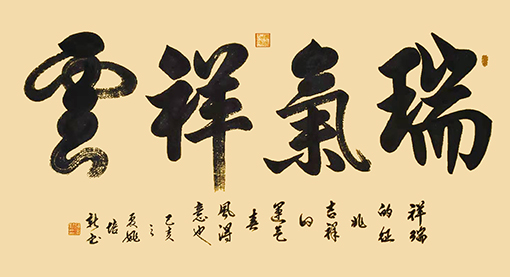 瑞氣祥雲
祥瑞
的征
兆
吉祥
的
運气
春
風得
意也
己亥
之
夏姚
培
新书